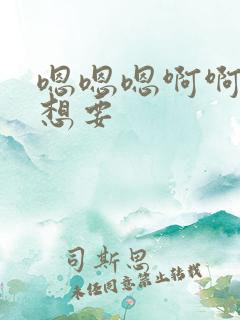 嗯嗯嗯啊啊
想要
司斯思
未经同意禁止转载